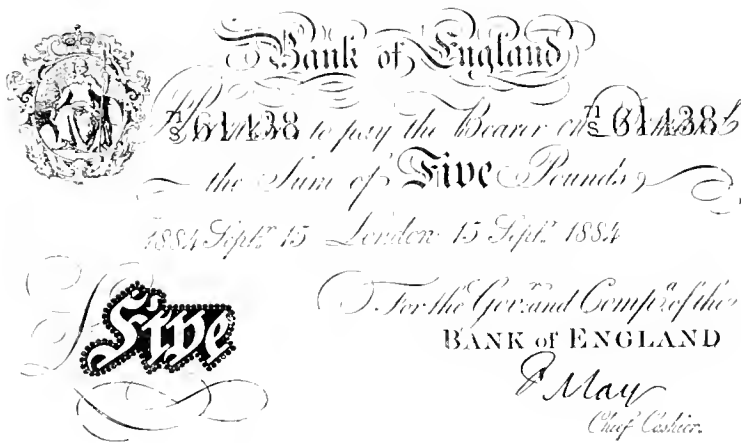 Bank of England
71/S 61438 Promise to pay the Bearer on Demand 71/S 61438
the Sum of Five Pounds
1884 Septr. 15 London 15 Septr. 1884
For the Govr. and Compa. of the
BANK of ENGLAND
Five
F May
Chief Cashier.